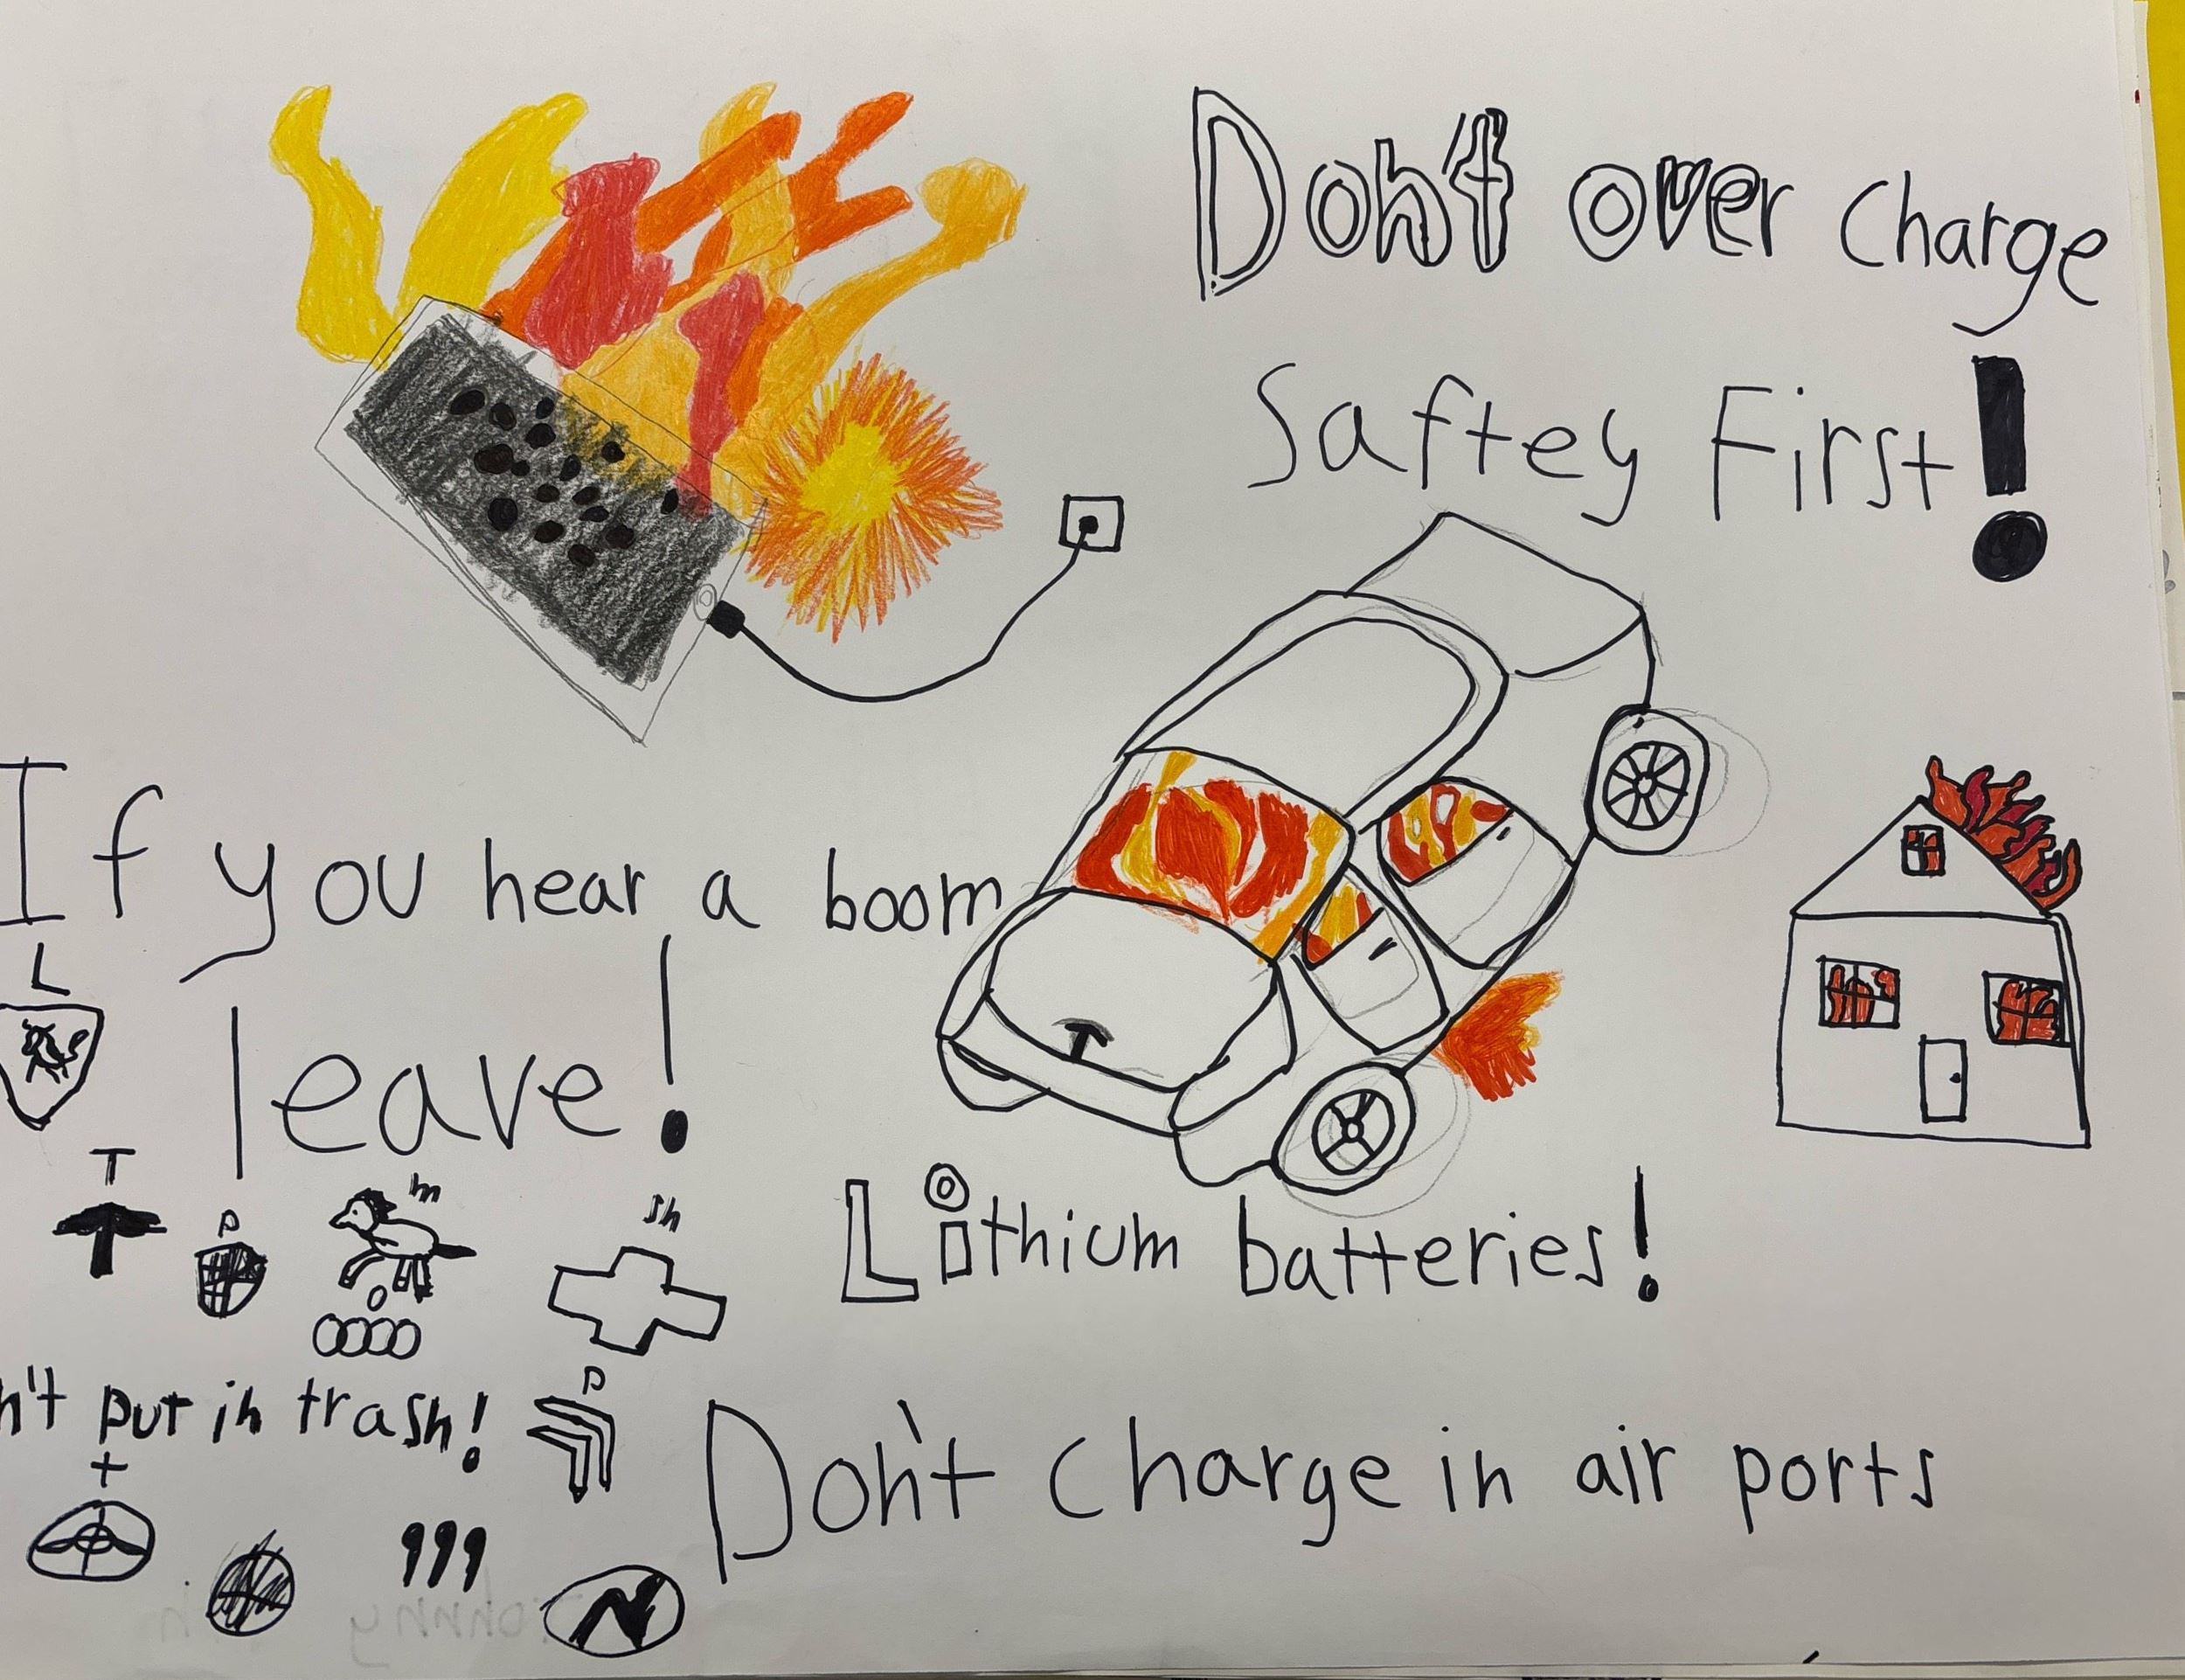 Don't over charge
Saftey First!
If you hear a boom
leave!
L
T
T
P
m
sh
Lithium batteries!
O
n't put in trash!
P
+
Don't charge in air ports
N
Johnny